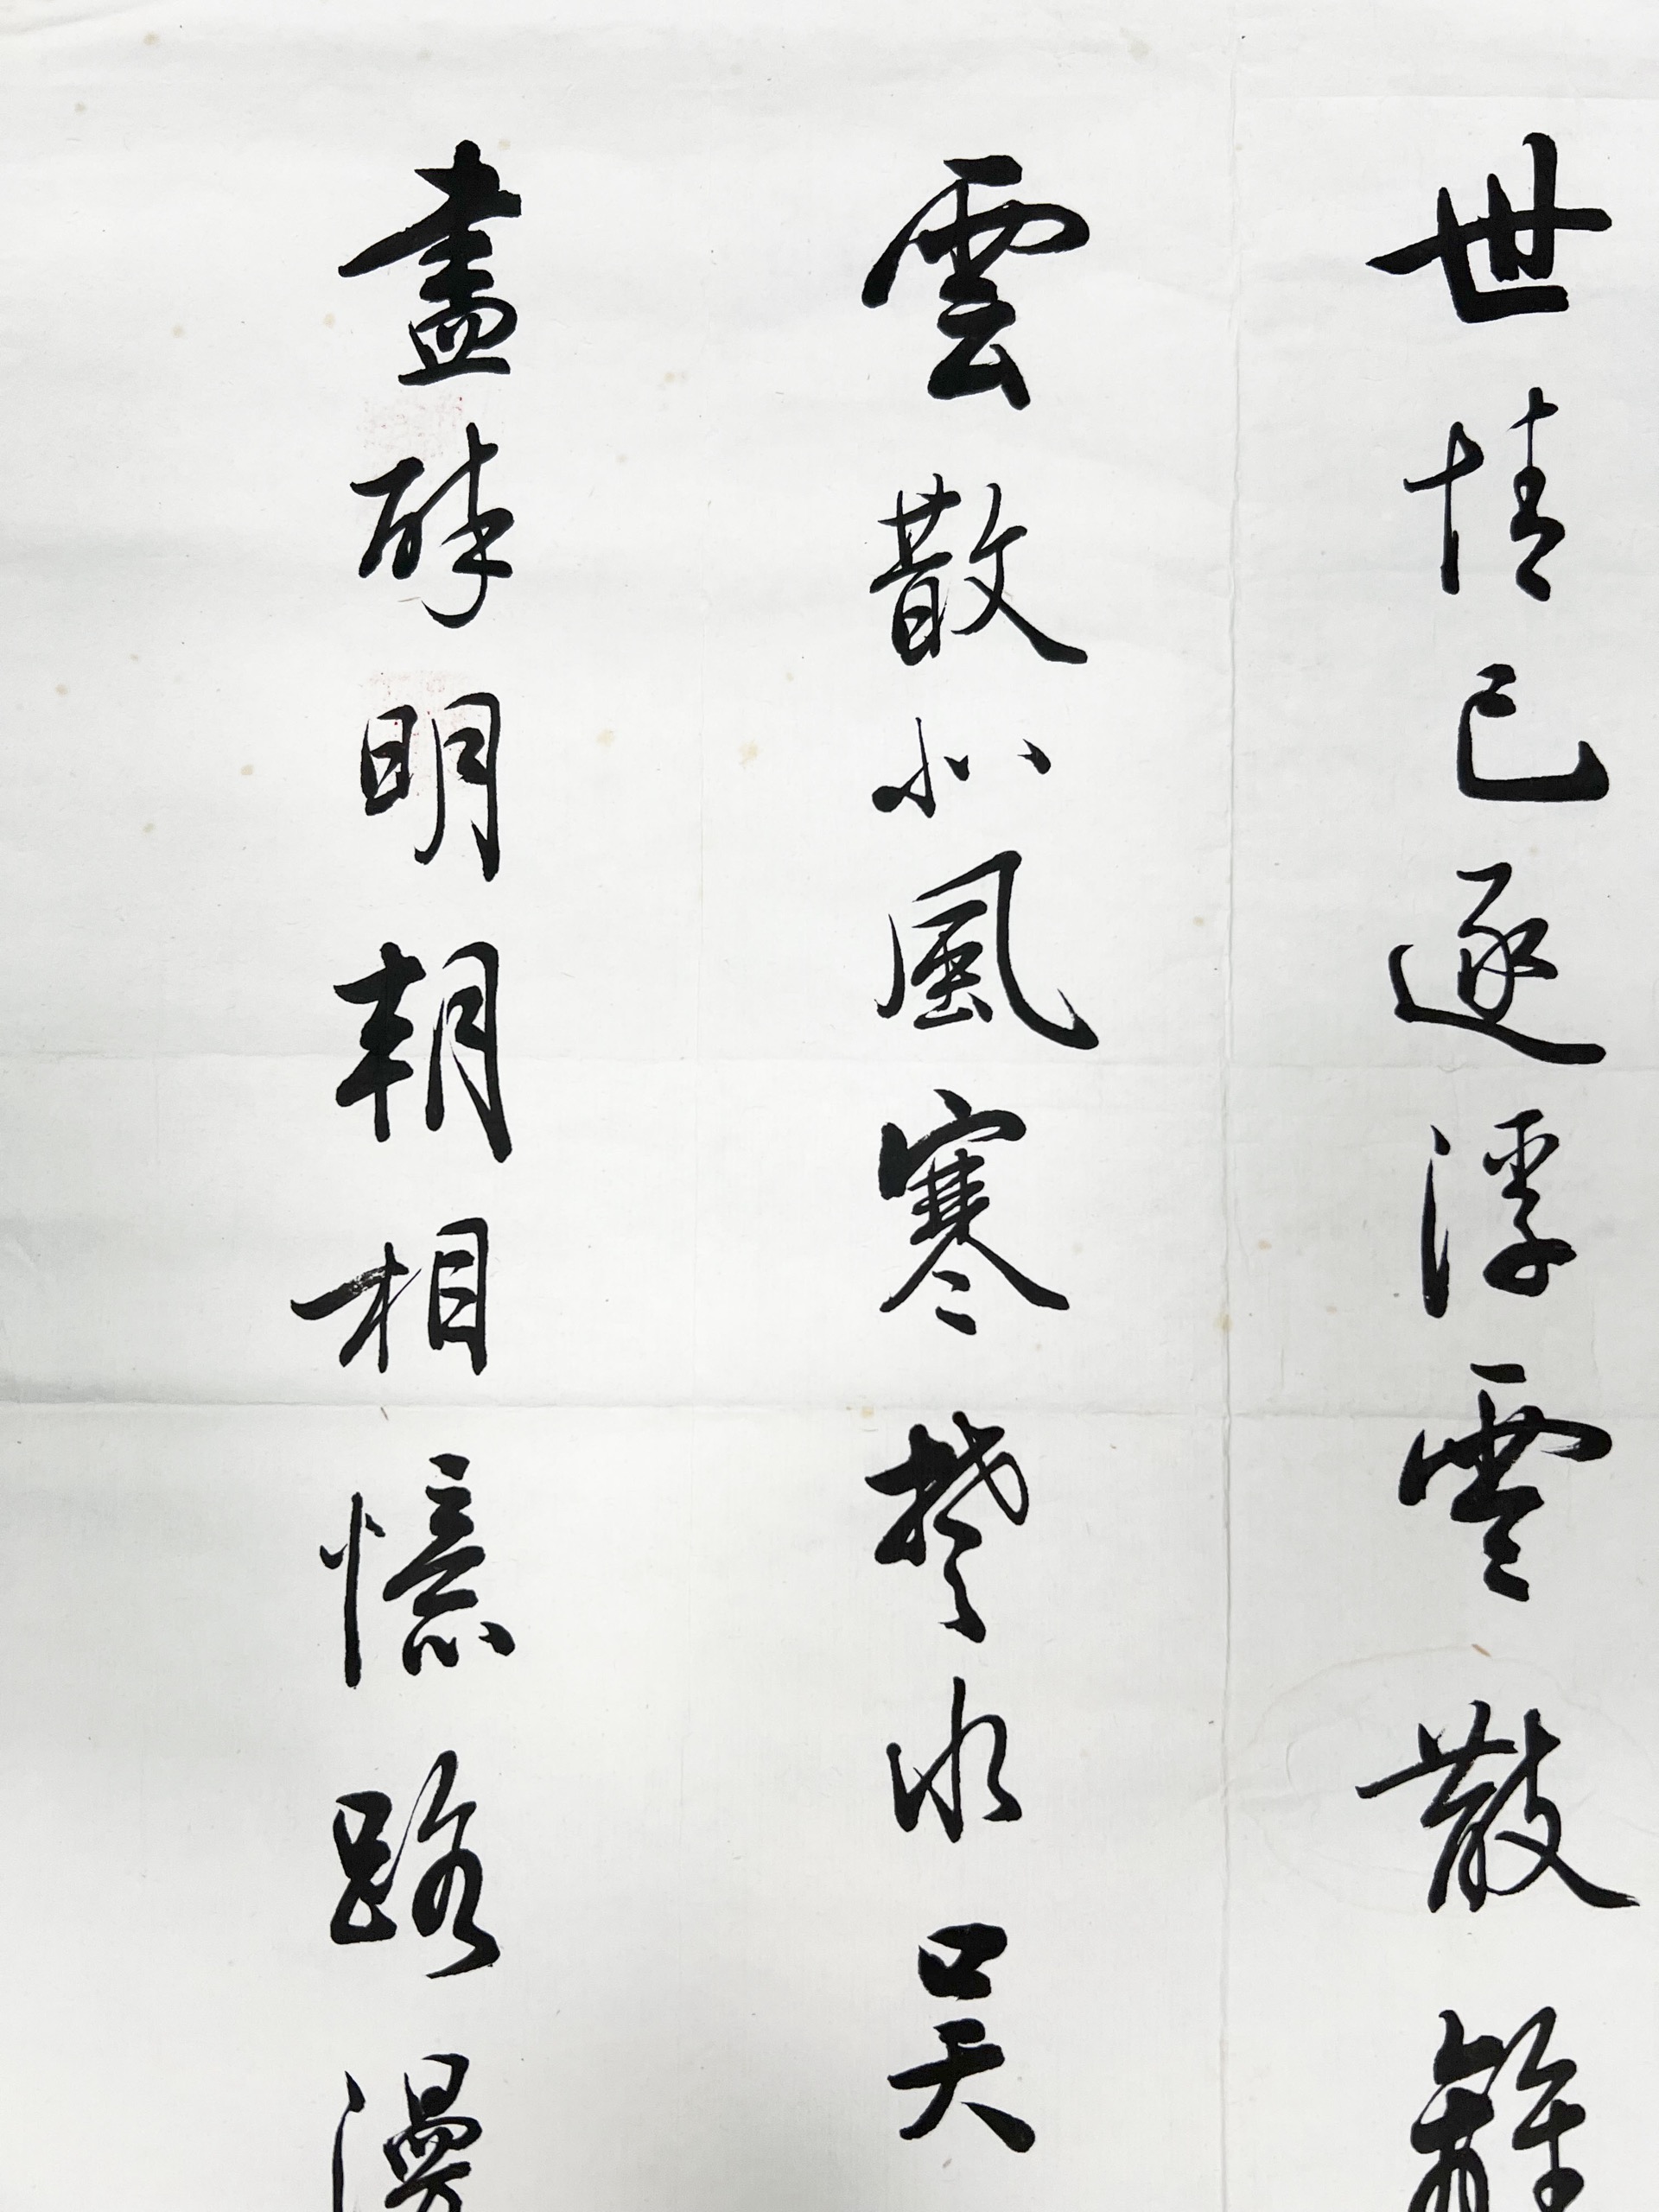 世情已逐浮雲散離
雲散北風寒楚水吳
盡醉明朝相憶路漫